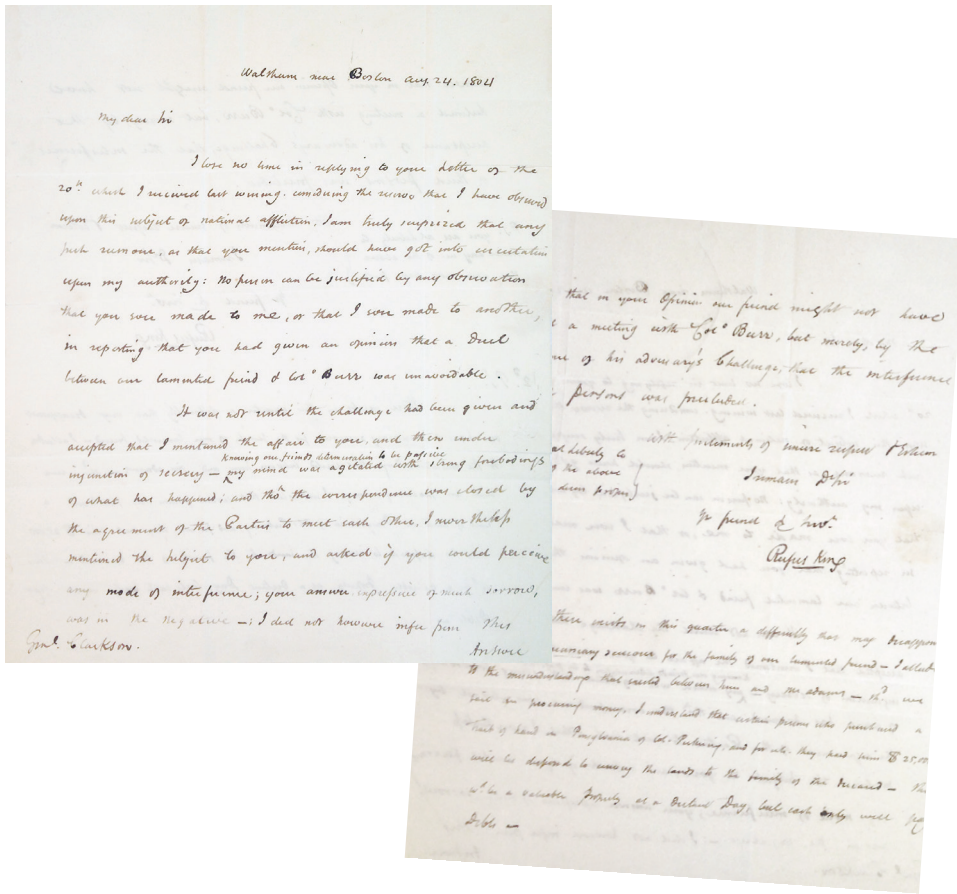 Waltham near Boston Aug. 24. 1804
My dear Sir
I lose no time in replying to your Letter of the
20th which I received last evening. considering the reserve that I have observed
upon this subject of national affliction, I am truly surprized that any
such rumour, as that you mention, should have got into circulation
upon my authority: No person can be justified by any observation
that you ever made to me, or that I ever made to another,
in reporting that you had given an opinion that a Duel
between our lamented friend & Col° Burr was unavoidable.
It was not until the challenge had been given and
accepted that I mentioned the affair to you, and then under
knowing our friends determination to be passive
injunction of secresy — my mind was agitated with strong forebodings
of what has happened; and tho' the correspondence was closed by
the agreement of the Parties to meet each other, I nevertheless
mentioned the subject to you, and asked if you could perceive
any mode of interference; your answer expressive of much sorrow,
was in the negative —: I did not however infer from this
Genl. Clarkson.
Answer
that in your Opinion our friend might not have
a meeting with Col° Burr, but merely, by the
of his adversary's Challenge, that the interference
persons was precluded.
with sentiments of sincere respect & Esteem
liberty to
of the above
deem proper}
I remain D Sir
yr friend & Servt.
Rufus King
there exists in this quarter a difficulty that may disappoin
pecuniary succour for the family of our lamented friend — I allude
to the misunderstandings that existed between him and Mr Adams —
in procuring money. I understand that certain persons who purchased a
tract of land in Pensylvania of Col. Pickering and for wh. they paid him $ 25,00
will be disposed to convey the lands to the family of the Deceased —
wd. be a valuable Property at a future Day, but cash only will pay
Debts —